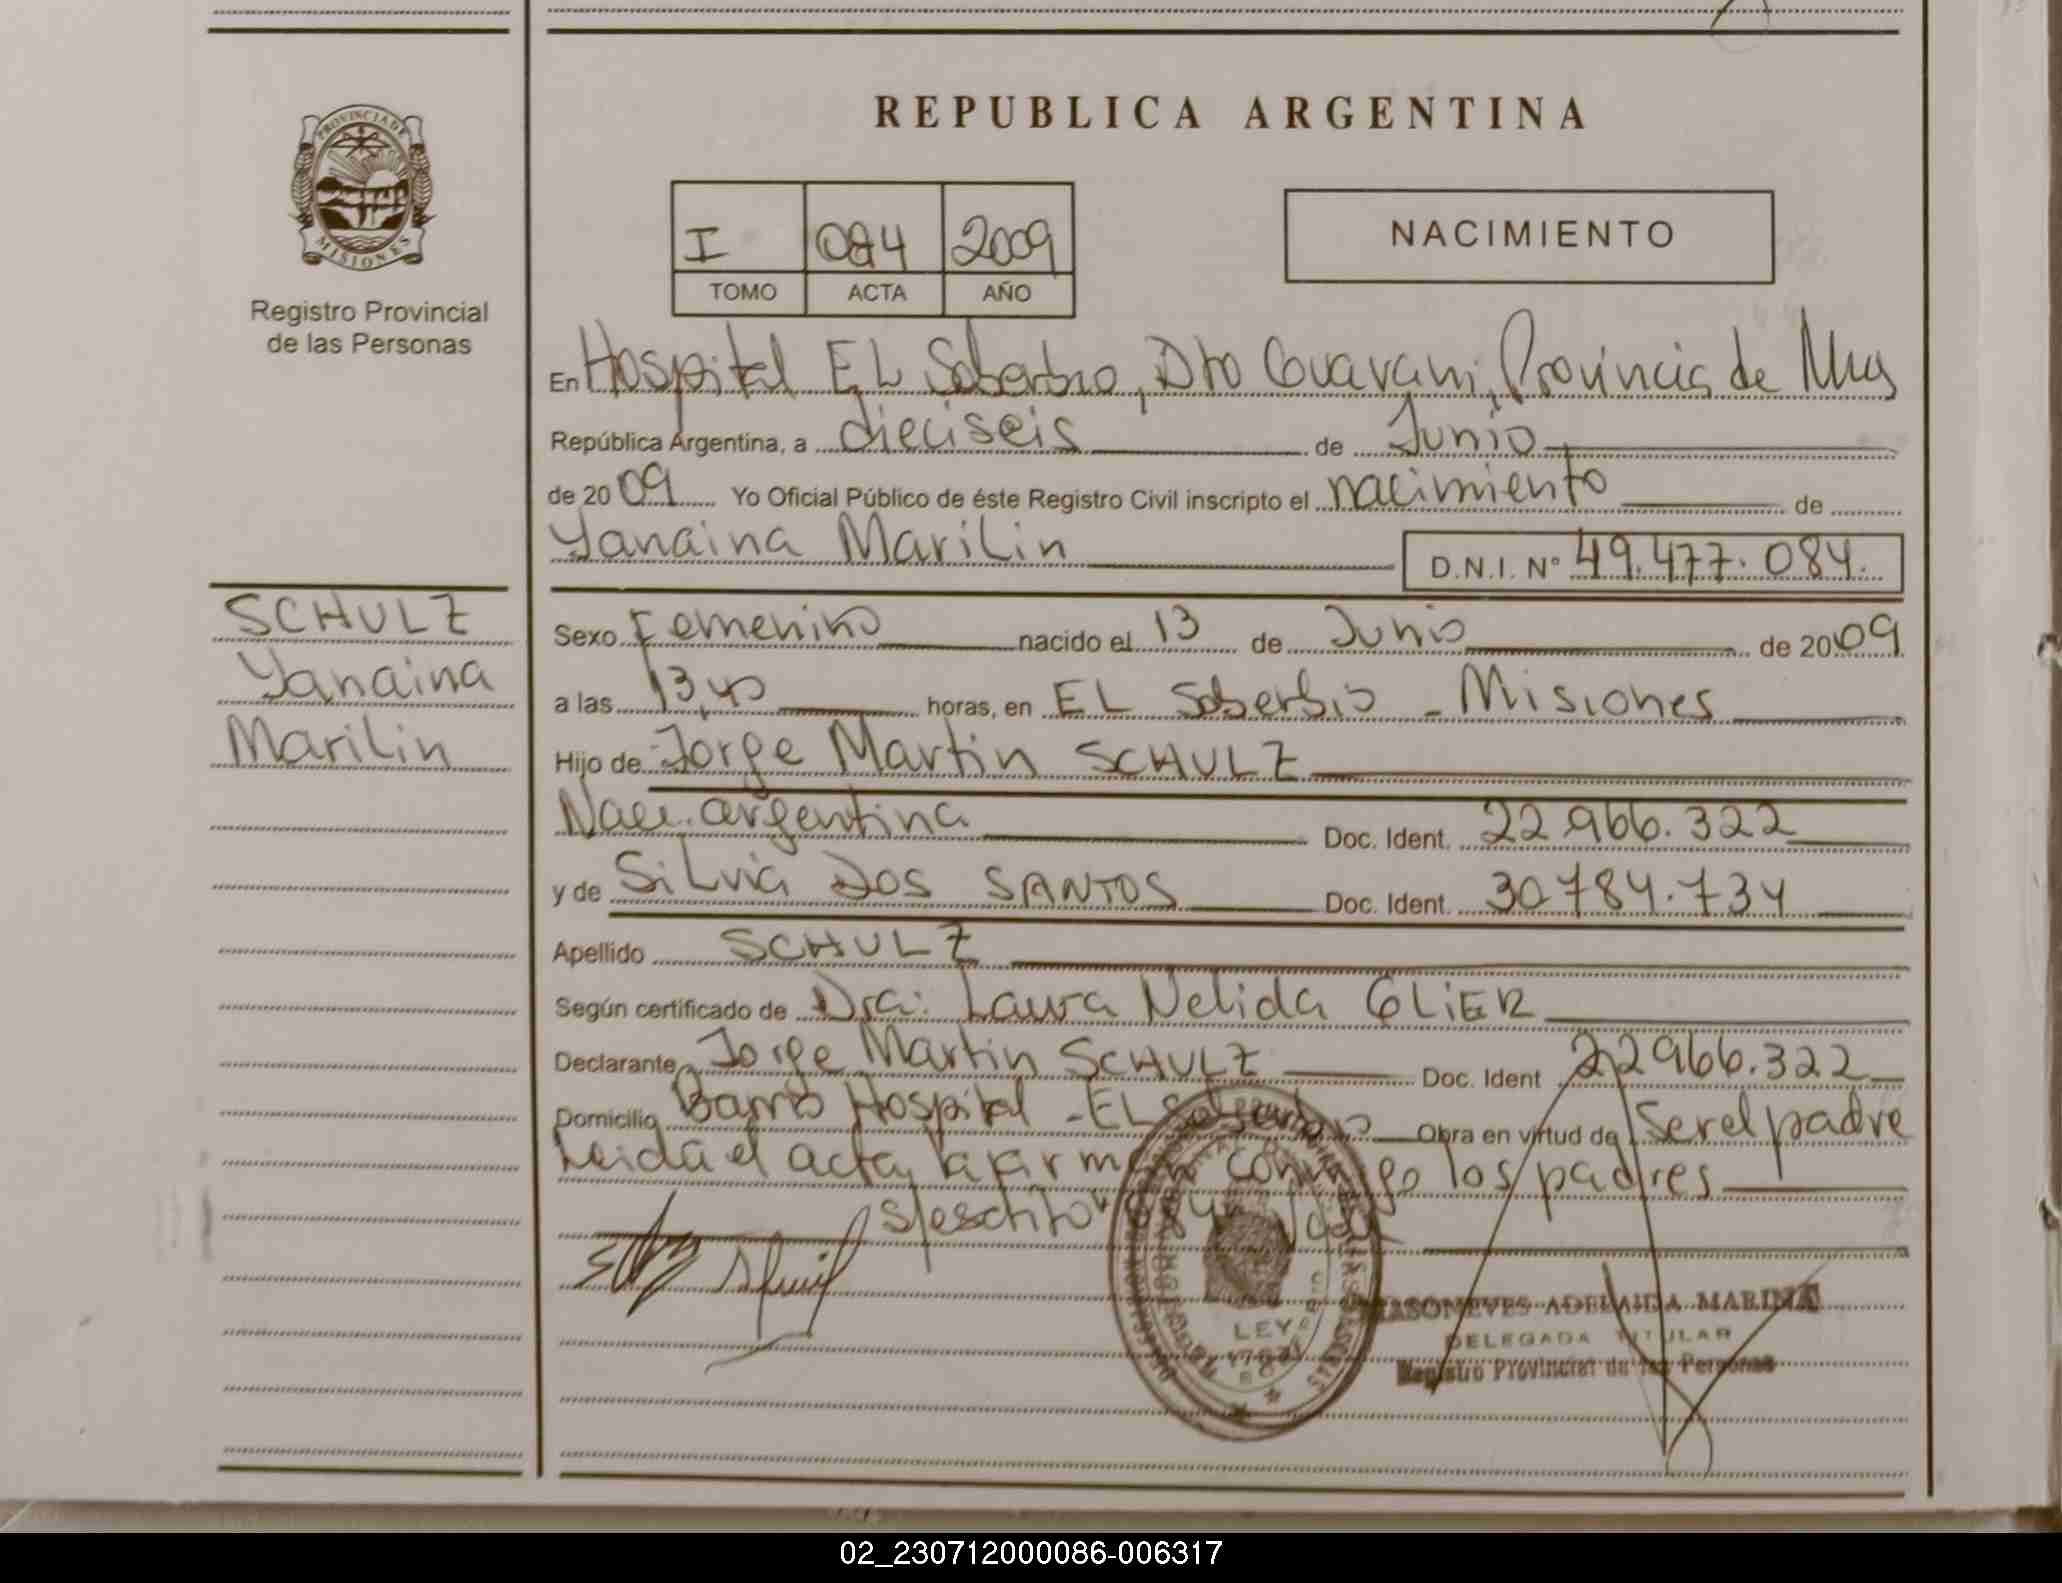 REPUBLICA ARGENTINA
PROVINCIA DE
MISIONES
Registro Provincial
de las Personas
I 084 2009
TOMO ACTA AÑO
NACIMIENTO
En Hospital EL Soberbio, Dto Guarani, Provincia de Mnes
República Argentina, a dieciseis de Junio
de 2009 Yo Oficial Público de éste Registro Civil inscripto el nacimiento de
Yanaina Marilin D.N.I. Nº 49.477.084.
SCHULZ
Yanaina
Marilin
Sexo Femenino nacido el 13 de Junio de 2009
a las 13,40 horas, en EL Soberbio - Misiones
Hijo de Jorge Martin SCHULZ
Nac. argentina Doc. Ident. 22.966.322
y de Silvia DOS SANTOS Doc. Ident. 30784.734
Apellido SCHULZ
Según certificado de Dra: Laura Nelida GLIER
Declarante Jorge Martin SCHULZ Doc. Ident 22966.322
Domicilio Barrio Hospital - EL Soberbio Obra en virtud de ser el padre
Leida el acta, la firman conmigo los padres
s/escrito
LEY
DELEGADA TITULAR
ADELAIDA MARINA
Registro Provincial de las Personas
02_230712000086-006317